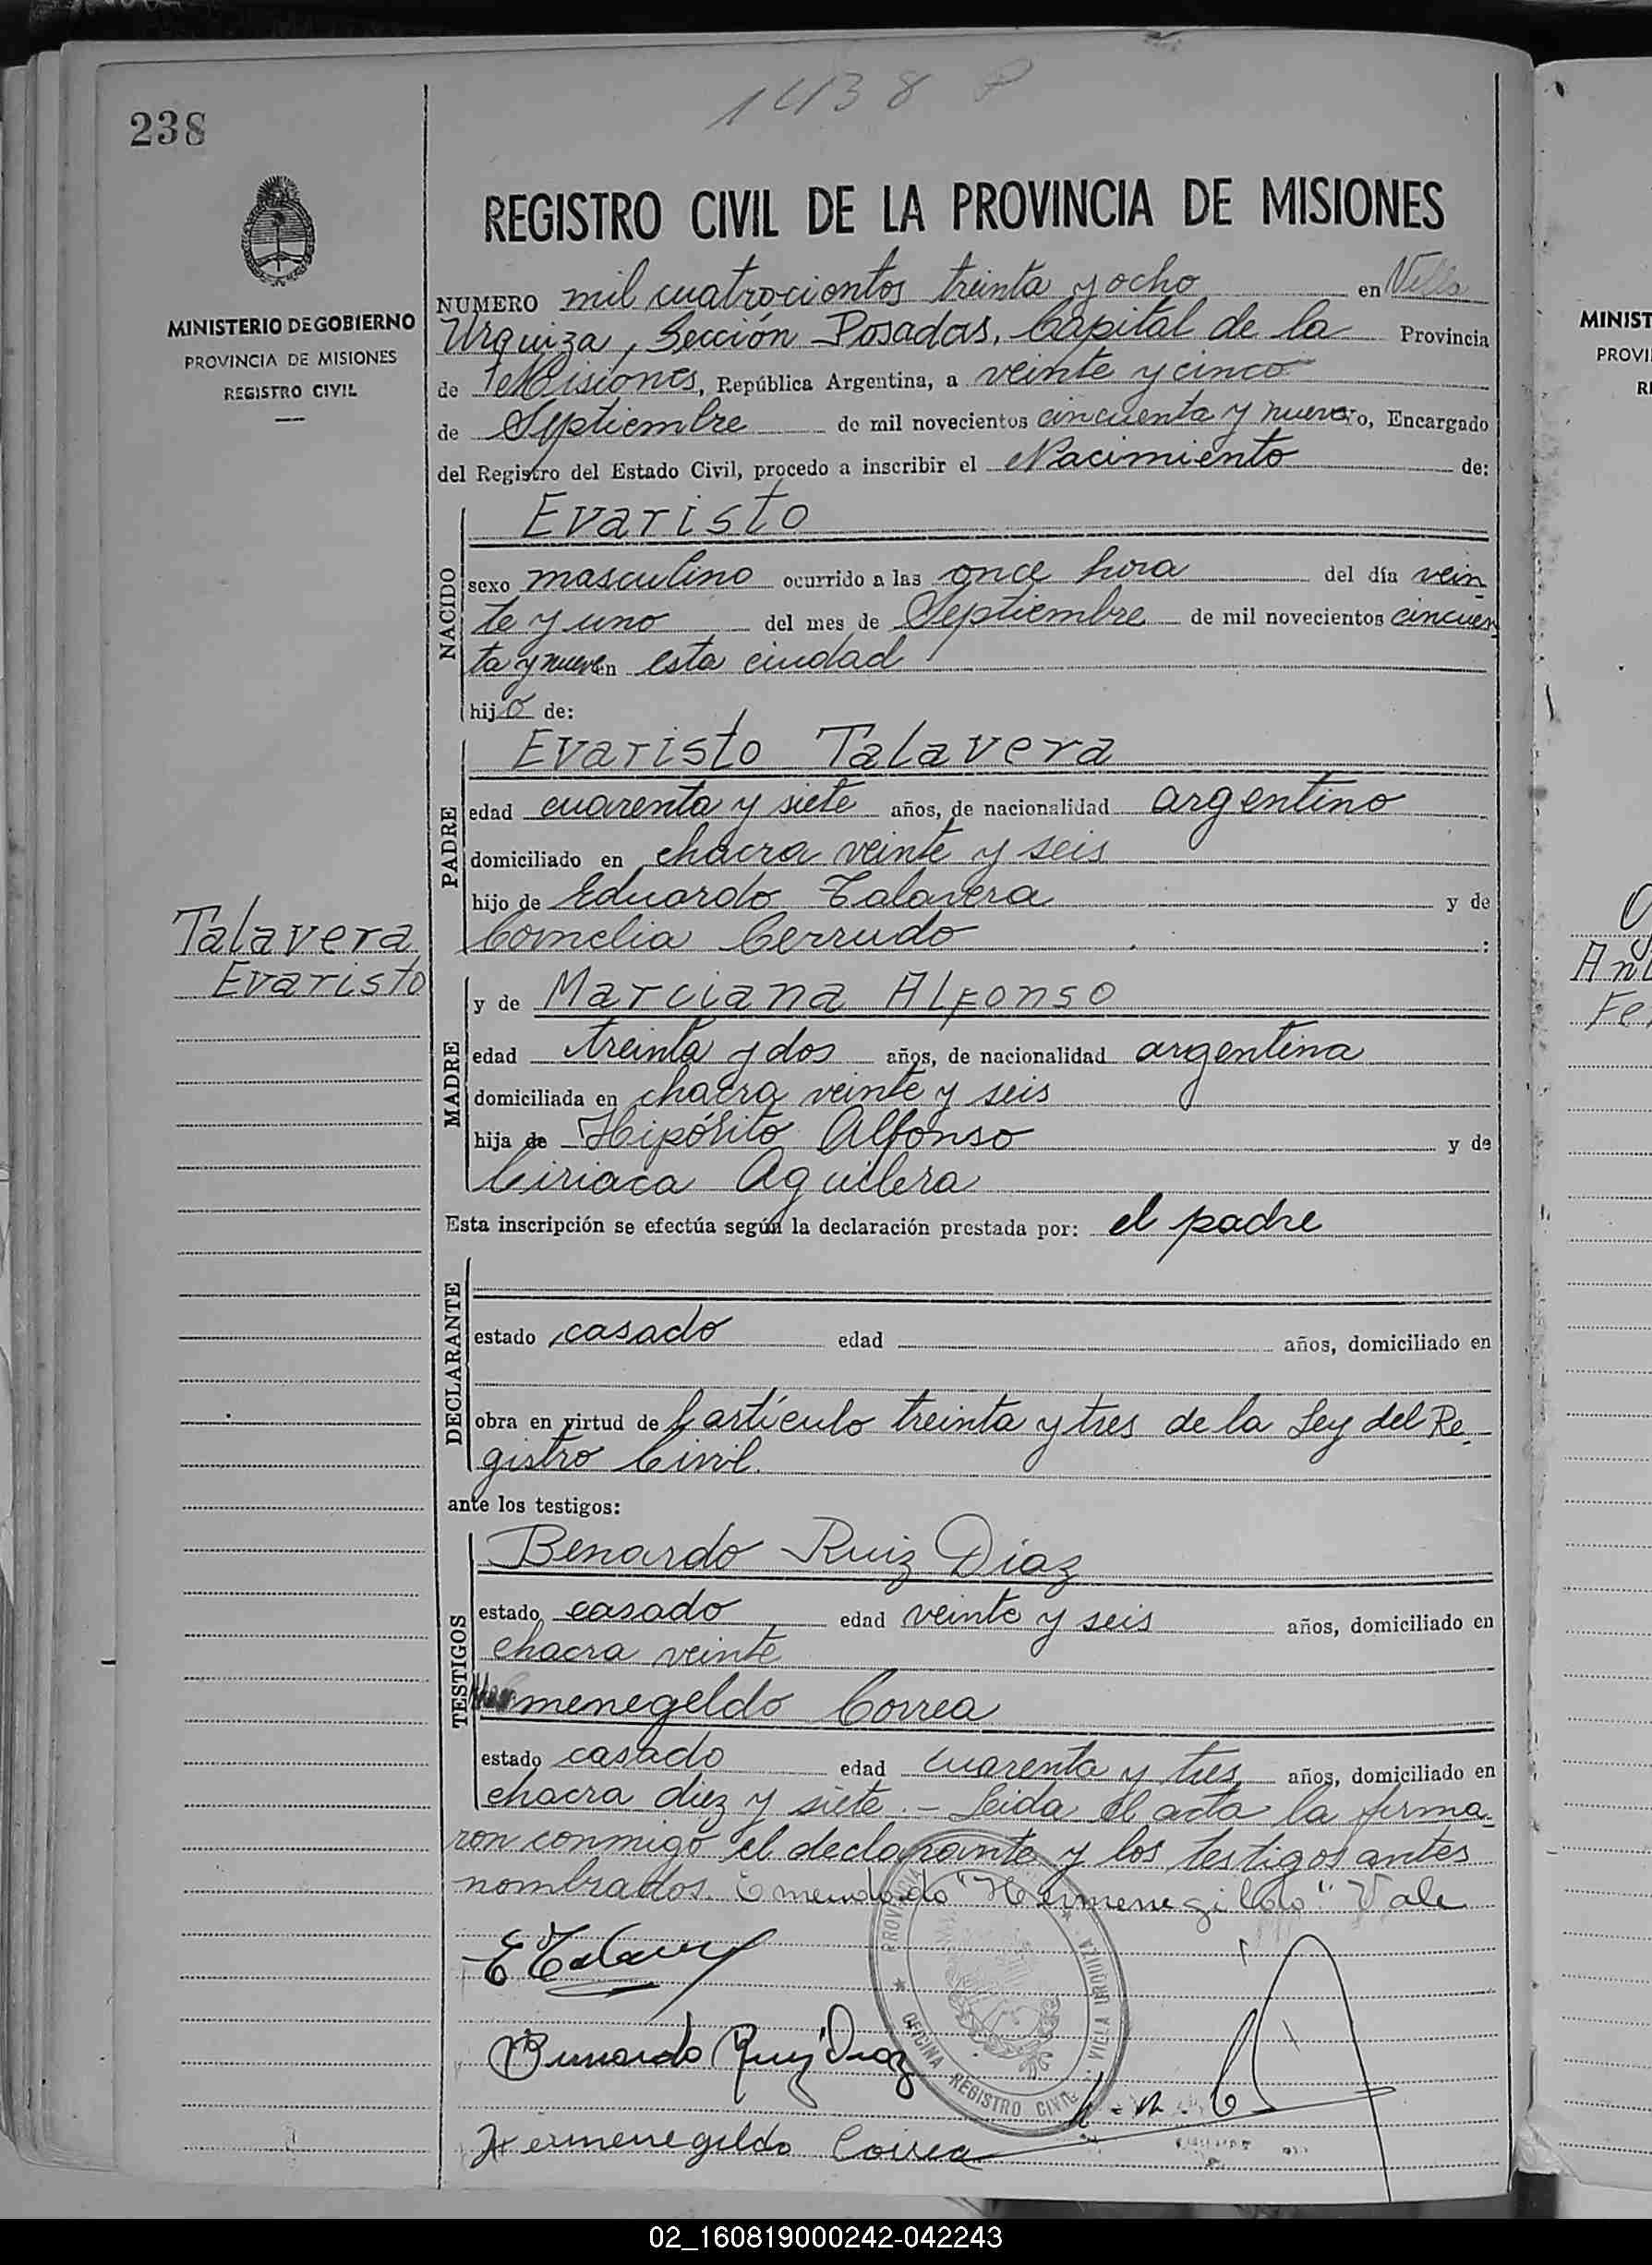 1438
238
REGISTRO CIVIL DE LA PROVINCIA DE MISIONES
MINISTERIO DE GOBIERNO
PROVINCIA DE MISIONES
REGISTRO CIVIL
NUMERO mil cuatrocientos treinta y ocho en Villa
Urquiza, Sección Posadas, Capital de la Provincia
de Misiones, República Argentina, a veinte y cinco
de Septiembre de mil novecientos cincuenta y nueve yo, Encargado
del Registro del Estado Civil, procedo a inscribir el Nacimiento de:
NACIDO
Evaristo
sexo masculino ocurrido a las once hora del día vein
te y uno del mes de Septiembre de mil novecientos cincuen
ta y nueve en esta ciudad
hijo de:
PADRE
Evaristo Talavera
edad cuarenta y siete años, de nacionalidad argentino
domiciliado en chacra veinte y seis
hijo de Eduardo Talavera y de
Cornelia Cerrudo :
Talavera
Evaristo
MADRE
y de Marciana Alfonso
edad treinta y dos años, de nacionalidad argentina
domiciliada en chacra veinte y seis
hija de Hipólito Alfonso y de
Ciriaca Aguilera
Esta inscripción se efectúa según la declaración prestada por: el padre
DECLARANTE
estado casado edad años, domiciliado en
obra en virtud del artículo treinta y tres de la Ley del Re-
gistro Civil.
ante los testigos:
TESTIGOS
Benardo Ruiz Díaz
estado casado edad veinte y seis años, domiciliado en
chacra veinte
menegeldo Correa
estado casado edad cuarenta y tres años, domiciliado en
chacra diez y siete.- Leida el acta la firma-
ron conmigo el declarante y los testigos antes
nombrados. Emendado "Hermenegildo" Vale
E Talavera
Bernardo Ruiz Diaz
Hermenegildo Correa
PROVINCIA
VILLA URQUIZA
OFICINA REGISTRO CIVIL
MINIST
PROVI
R
An
Fe
02_160819000242-042243